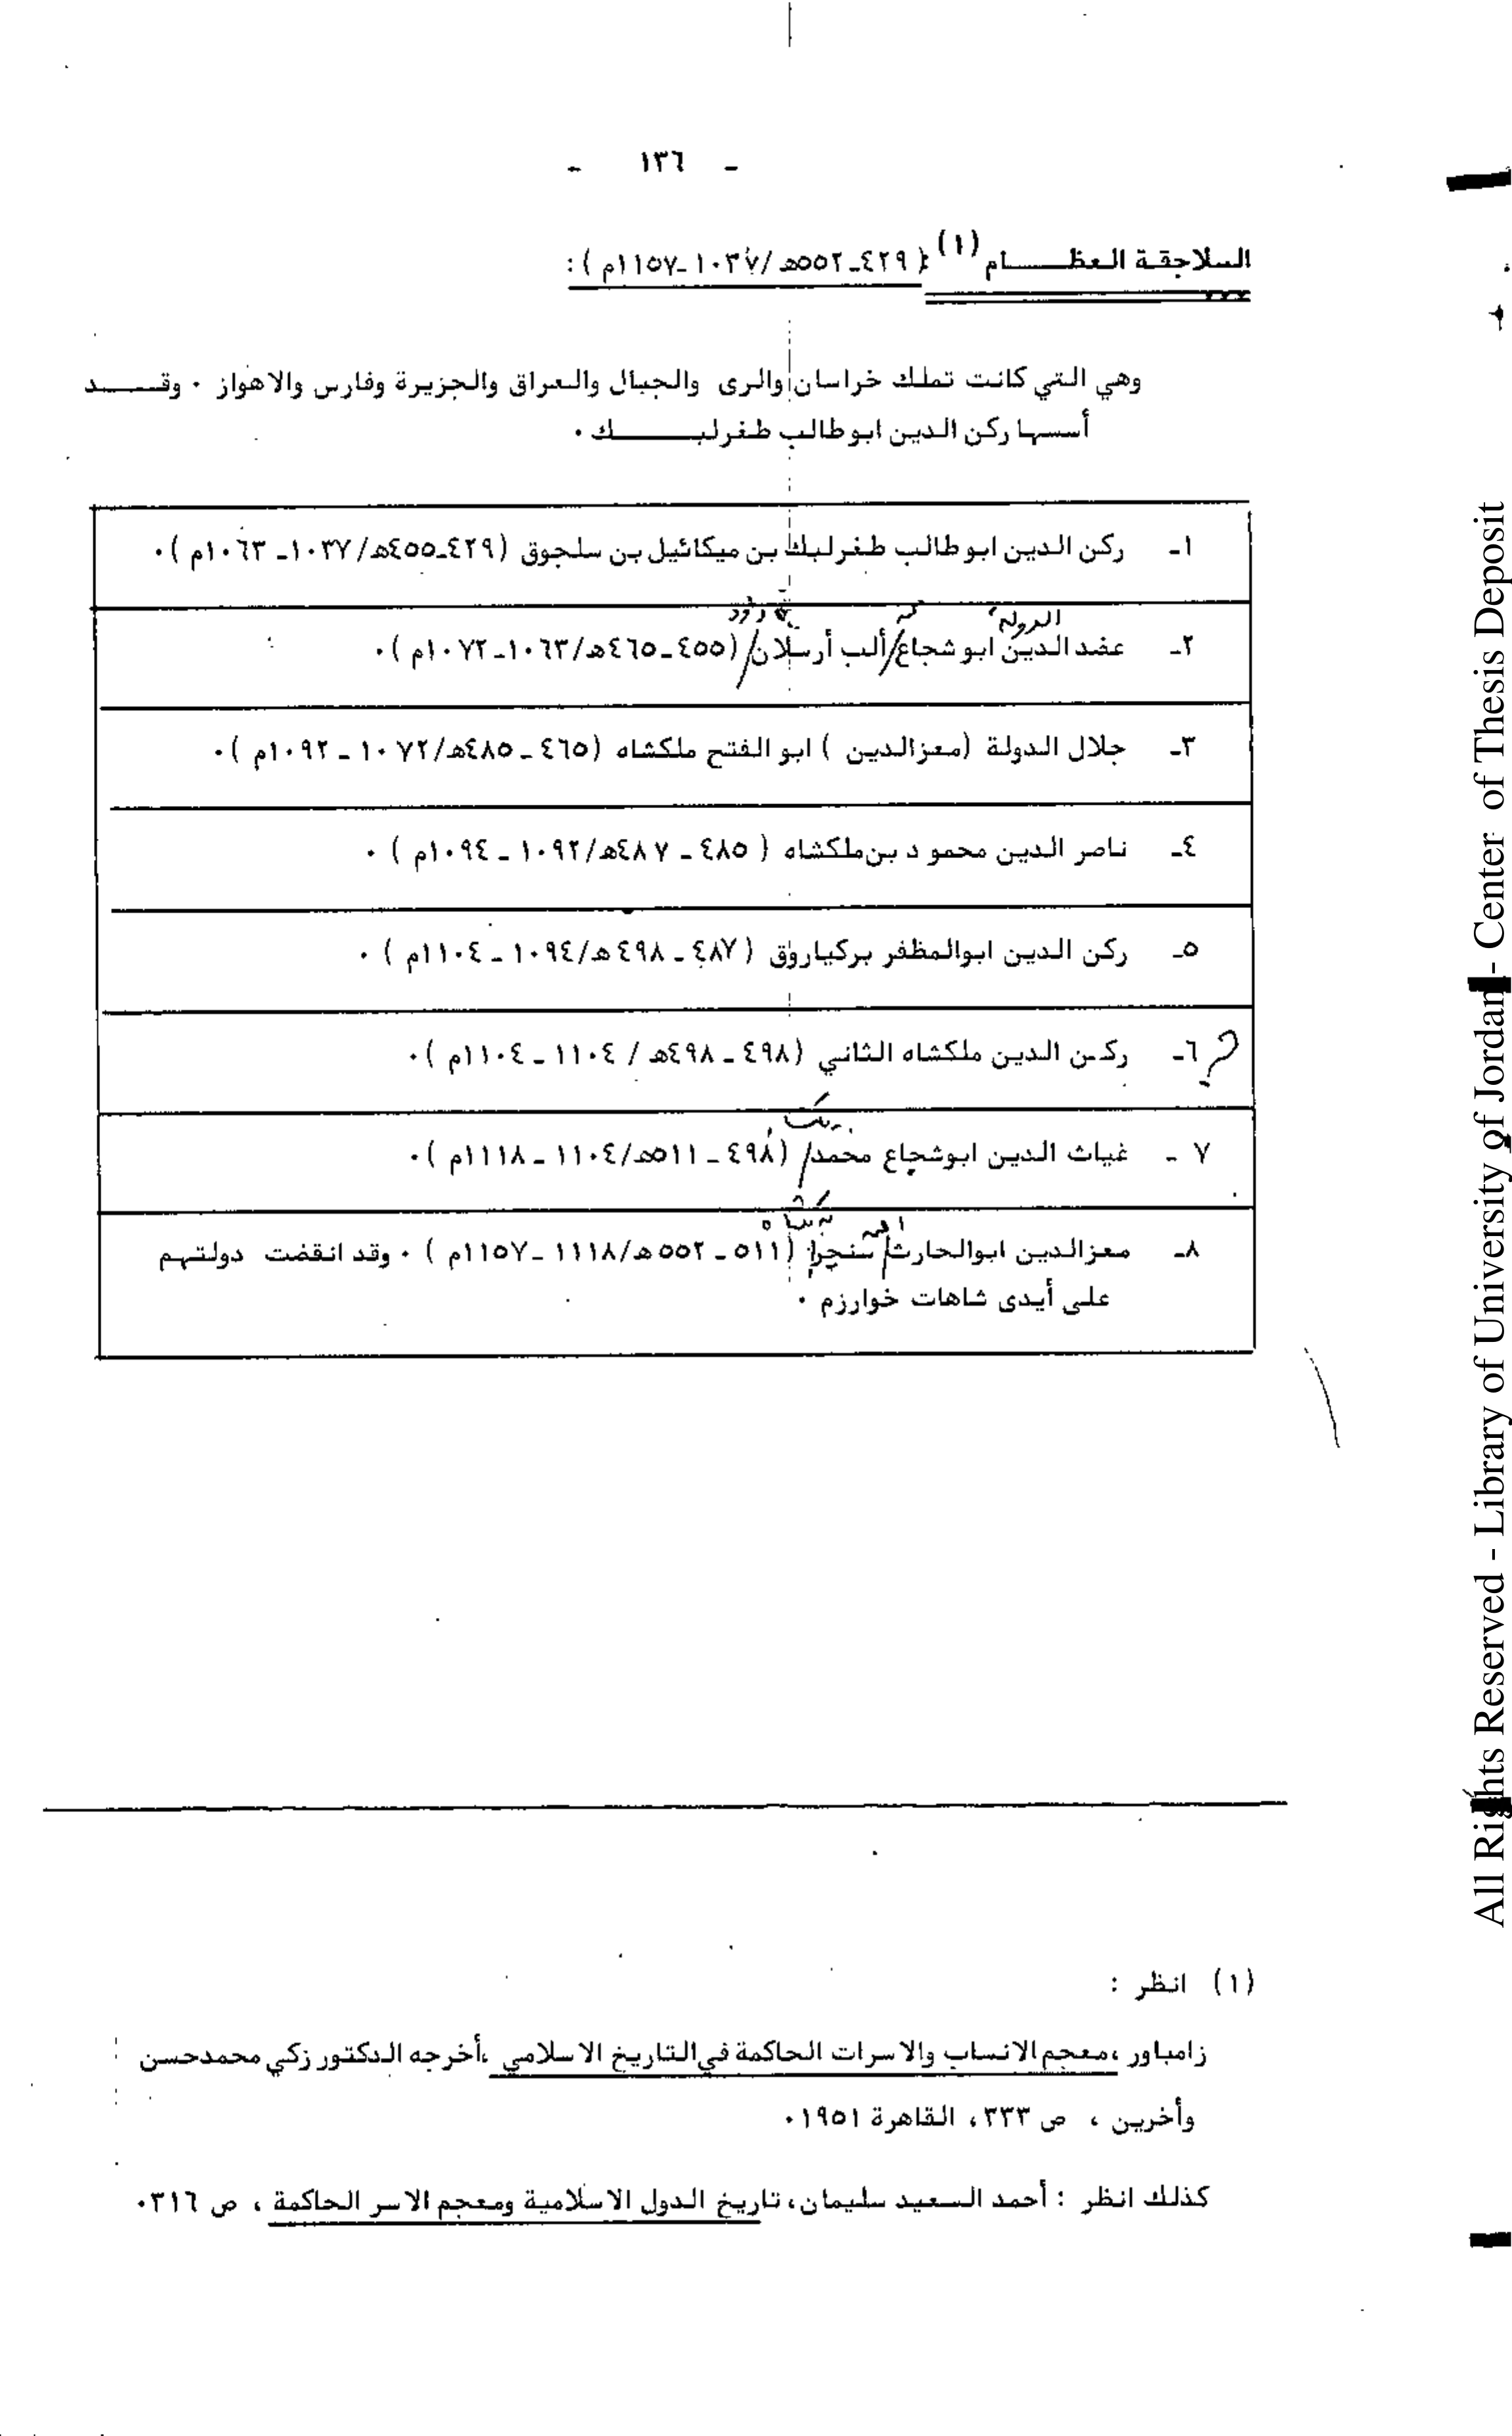 - ١٣٦ -
السلاجقة العظـــــام (١) (٤٢٩-٥٥٢هـ/١٠٣٧-١١٥٧م) :
وهي التي كانت تملك خراسان والرى والجبال والعراق والجزيرة وفارس والاهواز . وقـــــد
أسسها ركن الدين ابو طالب طغرلبـــــــك .
١- ركن الدين ابو طالب طغرلبك بن ميكائيل بن سلجوق (٤٢٩-٤٥٥هـ/١٠٣٧-١٠٦٣م).
الدولة
٢- عضد الدين ابو شجاع/ألب أرسلان/(٤٥٥-٤٦٥هـ/١٠٦٣-١٠٧٢م).
٣- جلال الدولة (معزالدين ) ابو الفتح ملكشاه (٤٦٥ - ٤٨٥هـ/١٠٧٢ - ١٠٩٢م).
٤- ناصر الدين محمود بن ملكشاه ( ٤٨٥ - ٤٨٧هـ/١٠٩٢ - ١٠٩٤م ) .
٥- ركن الدين ابوالمظفر بركياروق ( ٤٨٧ - ٤٩٨ هـ/١٠٩٤ - ١١٠٤م ) .
٦- ركن الدين ملكشاه الثاني (٤٩٨ - ٤٩٨هـ / ١١٠٤ - ١١٠٤م ).
٧ - غياث الدين ابوشجاع محمد/ (٤٩٨ - ٥١١هـ/١١٠٤ - ١١١٨م ).
٨- معزالدين ابوالحارث/ سنجر/ (٥١١ - ٥٥٢ هـ/١١١٨ -١١٥٧م ) . وقد انقضت دولتهم
على أيدى شاهات خوارزم .
(١) انظر :
زامباور ،معجم الانساب والاسرات الحاكمة في التاريخ الاسلامي ،أخرجه الدكتور زكي محمدحسن
وأخرين ، ص ٣٣٣، القاهرة ١٩٥١.
كذلك انظر : أحمد السعيد سليمان، تاريخ الدول الاسلامية ومعجم الاسر الحاكمة ، ص ٣١٦.
All Rights Reserved - Library of University of Jordan - Center of Thesis Deposit